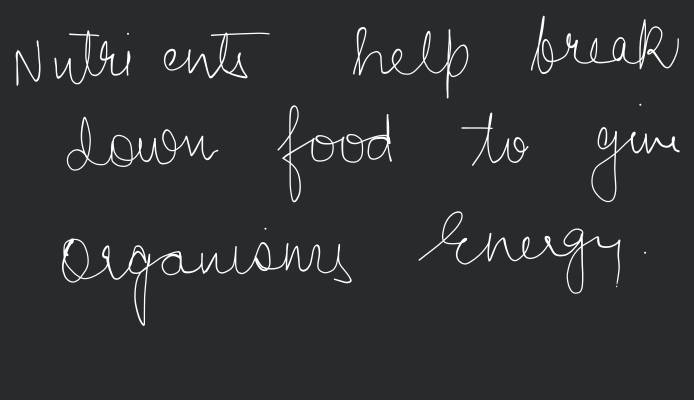 Nutrients help break
down food to give
Organisms Energy.